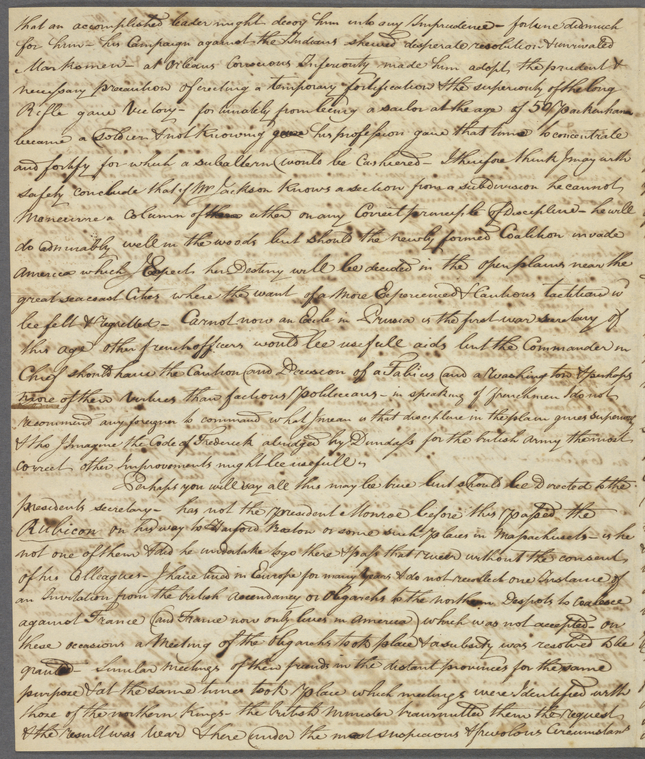 that an accomplished leader might decoy him into any Imprudence – fortune did much
for him – his Campaign against the Indians shewed desperate resolution & unrivaled
Marksmen – at Orleans conscious Inferiority made him adopt the prudent &
necessary precaution of erecting a temporary fortification & the superiority of the long
Rifle gave Victory – fortunately from being a sailor at the age of 50 Packenham
became a soldier & not knowing his profession gave that time to concentrate
and fortify for which a subaltern would be Cashiered – I therefore think I may with
safety conclude that if Mr Jackson knows a section from a subdivision he cannot
Manoeuvre a Column either on any Correct principle of Discipline – he will
do admirably well in the woods but should the newly formed Coalition invade
America which Expects her Destiny will be decided in the open plains near the
great sea coast Cities where the want of a more Experienced & Cautious tactitian w
be felt & regretted – Carnot now an Exile in Prussia is the first war secretary of
this age other french officers would be usefull aids but the Commander in
Chief should have the Caution and Precision of a Fabius and a Washington & perhaps
more of their virtues than factious Politicians – in speaking of frenchmen I do not
recommend any foreigner to command what I mean is that discipline in the plain gives superiority
& tho I imagine the Code of Frederick abridged by Dundass for the british Army the most
correct other Improvements might be usefull –
Perhaps you will say all this may be true but should be Directed to the
presidents secretary – has not the president Monroe before this passed the
Rubicon on his way to Harford Boston or some such places in Massachusets – is he
not one of them & did he undertake to go there & pass that river without the consent
of his Colleagues – I have lived in Europe for many years & do not recollect one Instance of
an Invitation from the british ascendancy or Oligarchs to the northern Despots to Coalesce
against France (and France now only lives in America) which was not accepted on
these occasions a Meeting of the Oligarchs took place & a subsidy was resolved to be
granted – Similar meetings of their friends in the distant provinces for the same
purpose & at the same time took place which meetings were Identified with
those of the northern Kings – the british Minister transmitted them the request
& the result was War & here under the most suspicious & frivolous Circumstan